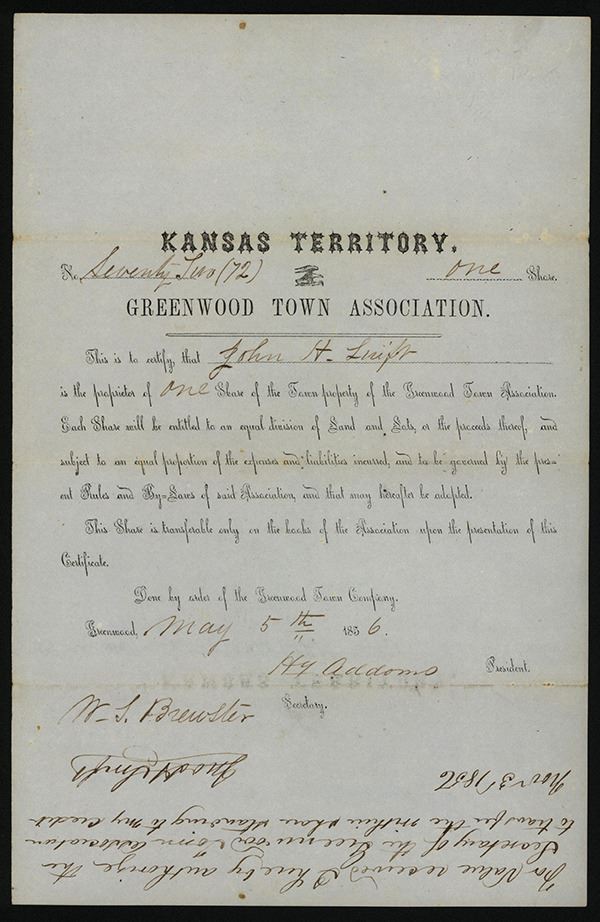 KANSAS TERRITORY.
No. Seventy Two (72) one Share.
GREENWOOD TOWN ASSOCIATION.
This is to certify, that John H. Swift
is the proprietor of one Share of the Town property of the Greenwood Town Association.
Each Share will be entitled to an equal division of Land and Lots, or the proceeds thereof, and
subject to an equal proportion of the expenses and liabilities incurred, and to be governed by the pres-
ent Rules and By-Laws of said Association, and that may hereafter be adopted.
This Share is transferable only on the books of the Association upon the presentation of this
Certificate.
Done by order of the Greenwood Town Company.
Greenwood, May 5th 1856.
Hy Addoms President.
W. S. Brewster Secretary.
For Value received I hereby authorize the
Secretary of the Greenwood Town Association
to transfer the within share standing to my credit
Nov 3 1856
Jno H Swift